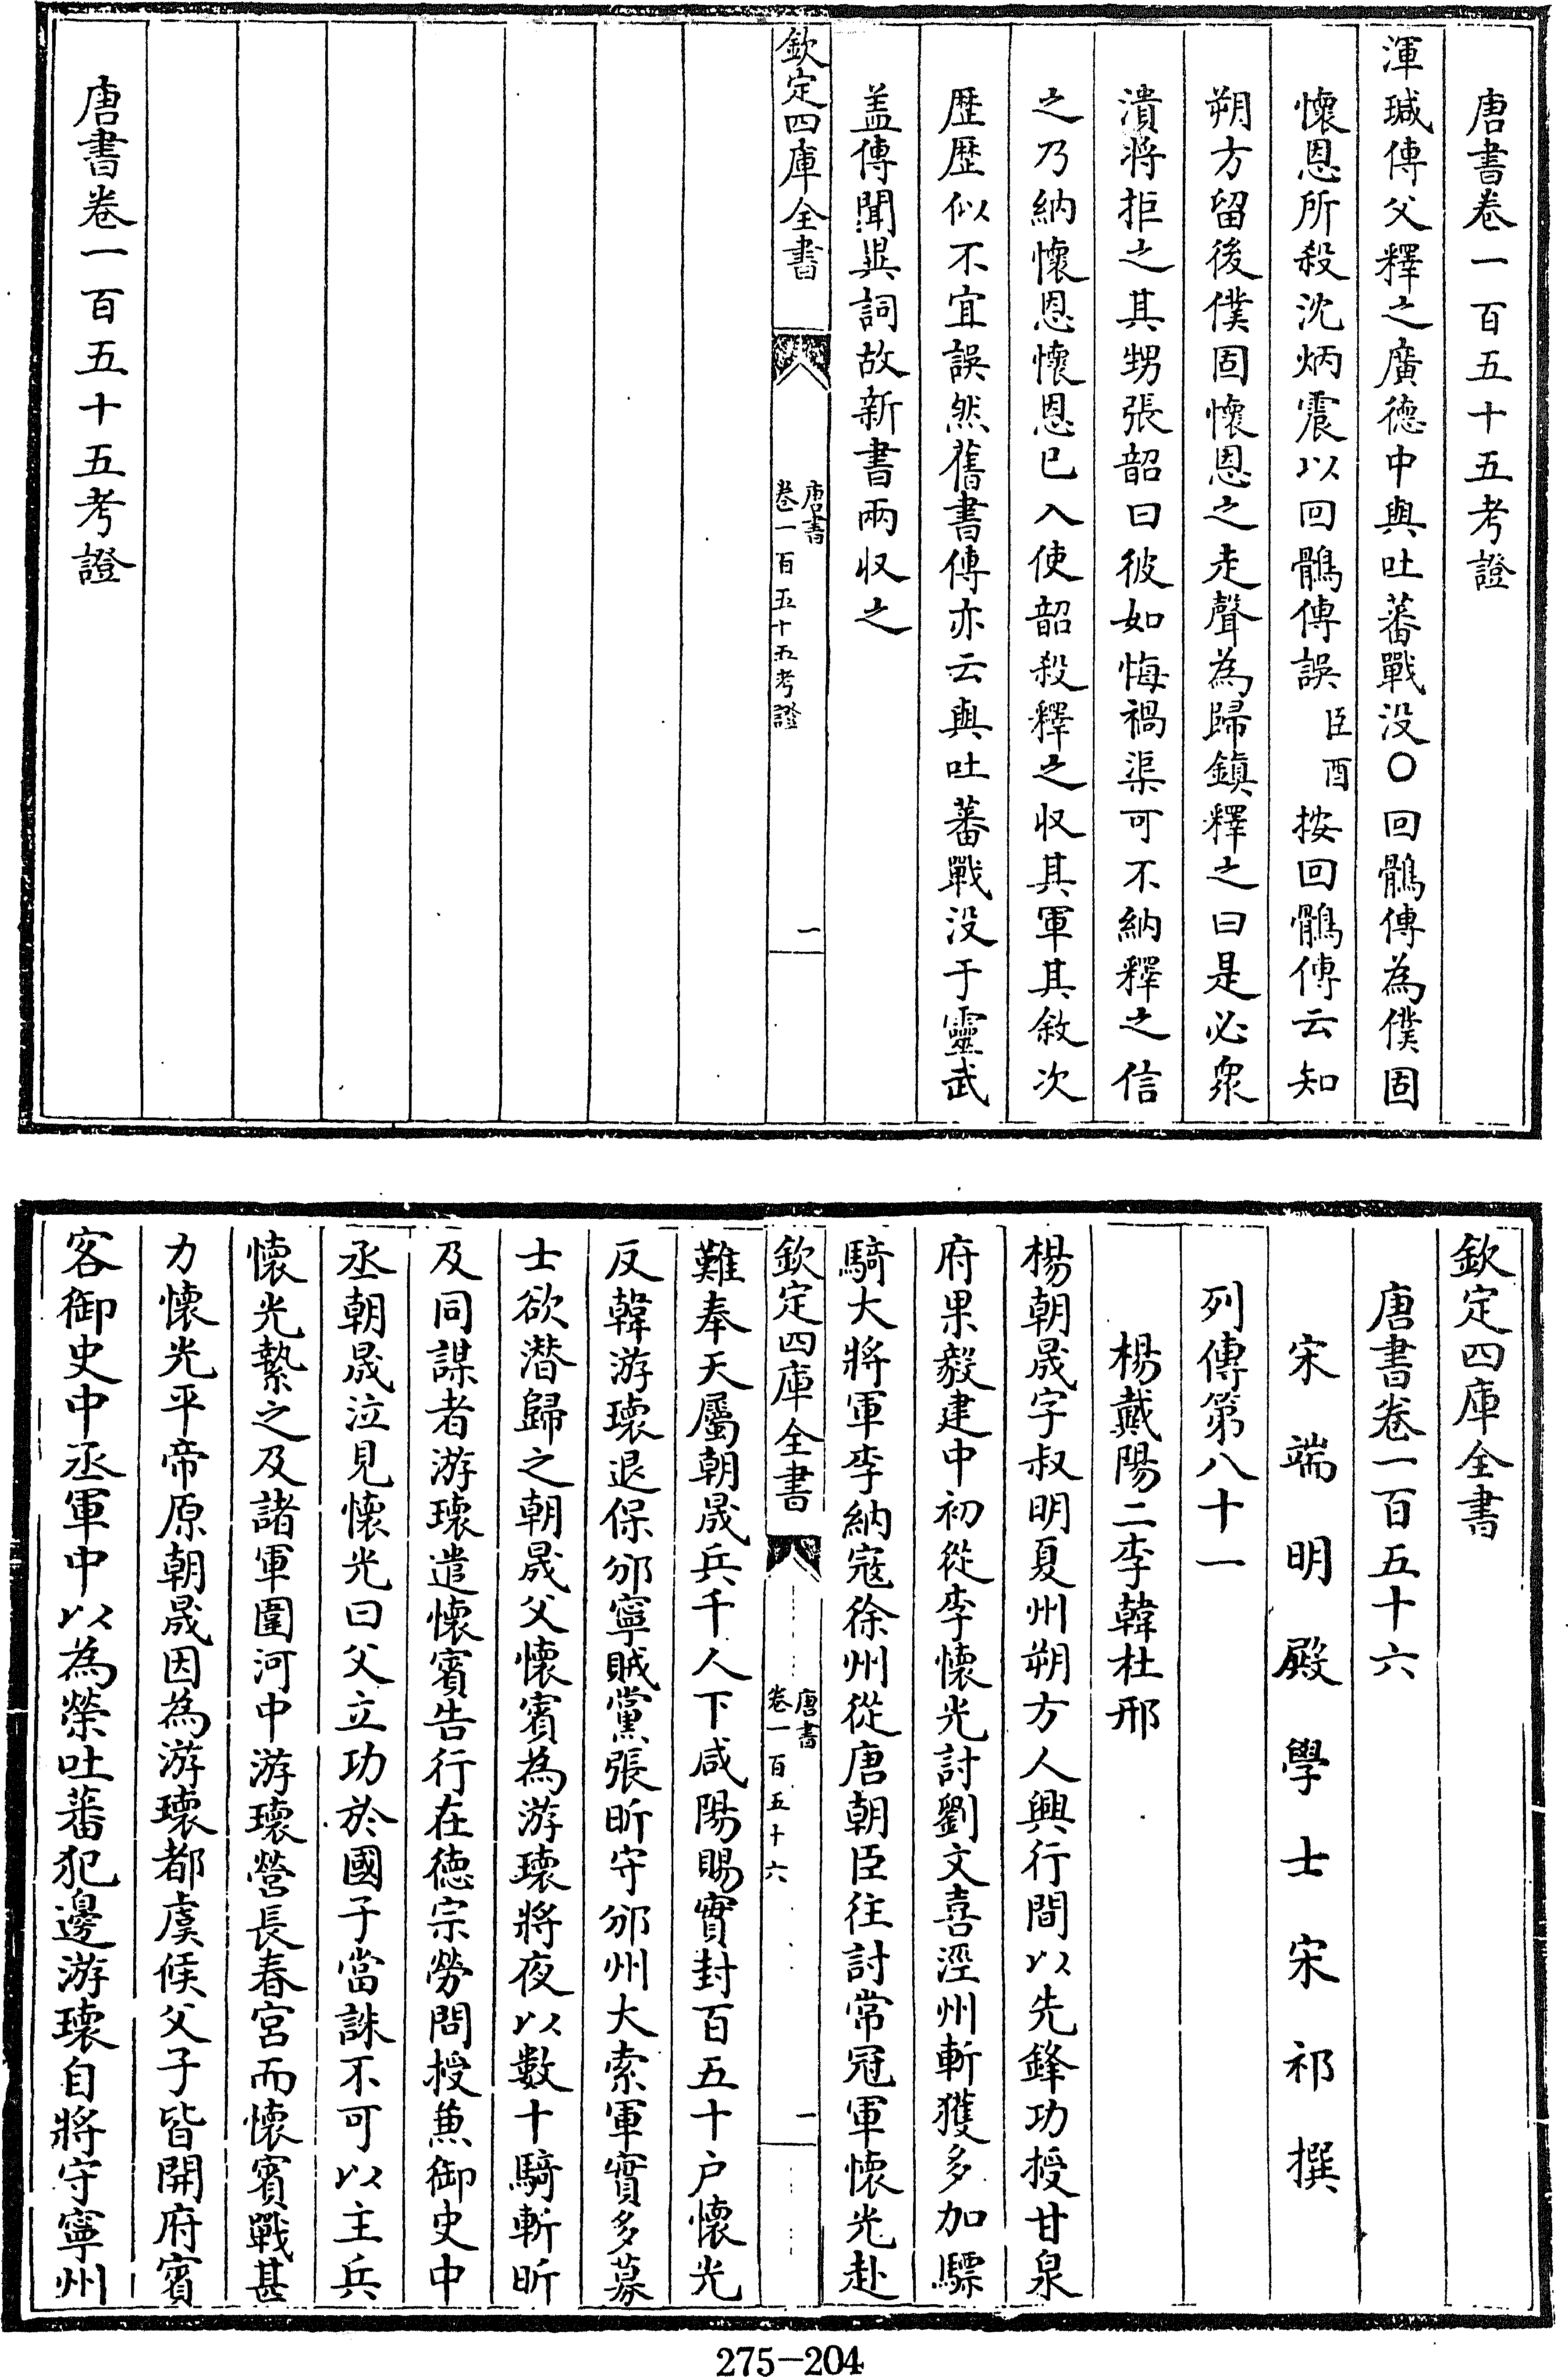 唐書卷一百五十五考證
渾瑊傳父釋之廣德中與吐蕃戰没〇回鶻傳為僕固
懷恩所殺沈炳震以回鶻傳誤臣酉按回鶻傳云知
朔方留後僕固懷恩之走聲為歸鎮釋之曰是必衆
潰將拒之其甥張韶曰彼如悔禍渠可不納釋之信
之乃納懷恩懷恩已入使韶殺釋之収其軍其敘次
歷歷似不宜誤然舊書傳亦云與吐蕃戰没于靈武
盖傳聞異詞故新書兩収之
欽定四庫全書
唐書
卷一百五十五考證
一
唐書卷一百五十五考證
欽定四庫全書
唐書卷一百五十六
宋端明殿學士宋祁撰
列傳第八十一
楊戴陽二李韓杜邢
楊朝晟字叔明夏州朔方人興行間以先鋒功授甘泉
府果毅建中初從李懷光討劉文喜涇州斬獲多加驃
騎大將軍李納寇徐州從唐朝臣往討常冠軍懷光赴
欽定四庫全書
唐書
卷一百五十六
一
難奉天屬朝晟兵千人下咸陽賜實封百五十户懷光
反韓游瓌退保邠寧賊黨張昕守邠州大索軍實多募
士欲潛歸之朝晟父懷賓為游瓌將夜以數十騎斬昕
及同謀者游瓌遣懷賓告行在德宗勞問授兼御史中
丞朝晟泣見懷光曰父立功於國子當誅不可以主兵
懷光縶之及諸軍圍河中游瓌營長春宮而懷賓戰甚
力懷光平帝原朝晟因為游瓌都虞候父子皆開府賓
客御史中丞軍中以為榮吐蕃犯邊游瓌自將守寧州
275-204